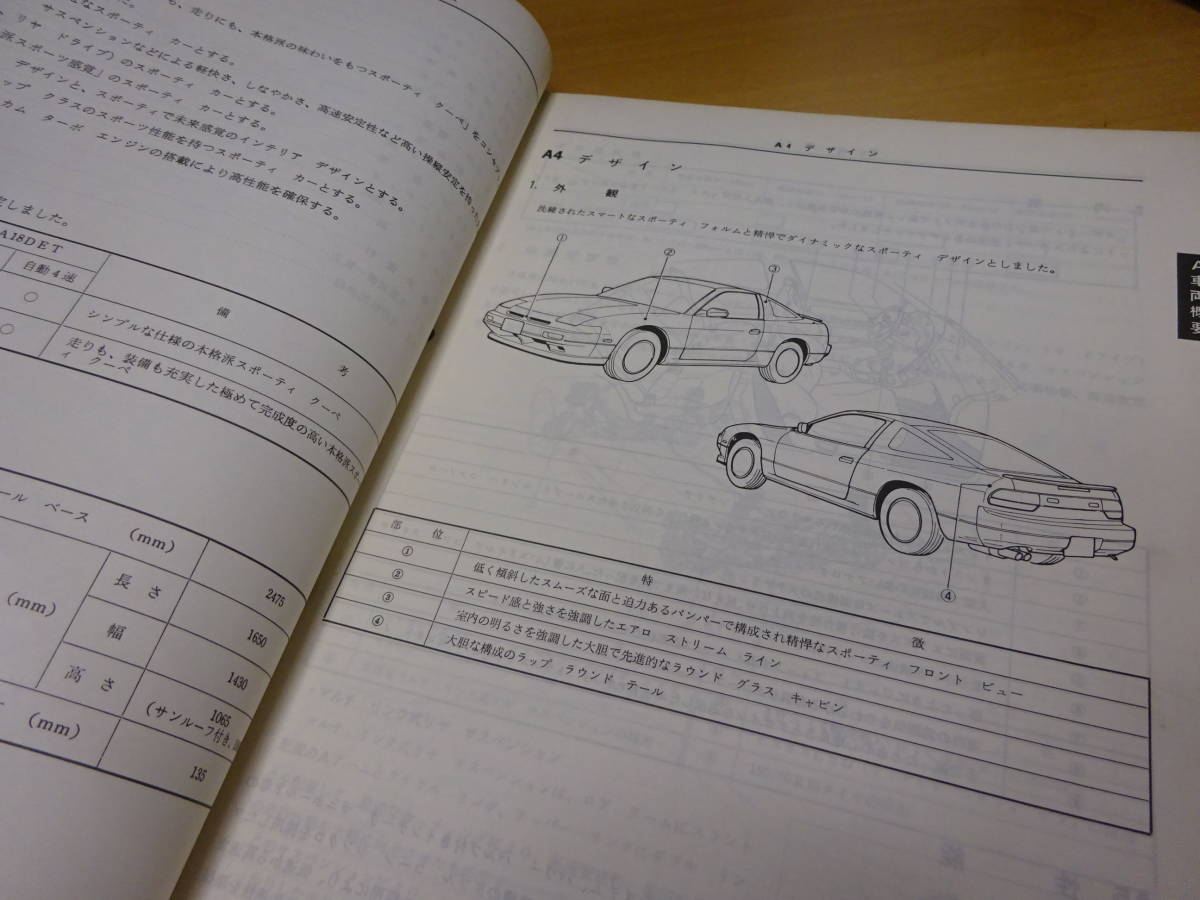 も、走りにも、本格派の味わいをもつスポーティ クーペ」をコンセプ
なスポーティ カーとする。
サスペンションなどによる軽快さ、しなやかさ、高速安定性など高い操縦安定を持った
リヤ ドライブ)のスポーティ カーとする。
派スポーツ感覚」のスポーティ カーとする。
デザインと、スポーティで未来感覚のインテリア デザインとする。
ップ クラスのスポーツ性能を持つスポーティ カーとする。
カム ターボ エンジンの搭載により高性能を確保する。
定しました。
A18DET
自動4速
備 考
○
シンプルな仕様の本格派スポーティ クーペ
○
走りも、装備も充実した極めて完成度の高い本格派スポ
ィ クーペ
ール ベース (mm)
2475
(mm)
長 さ
1650
幅
1430
高 さ
1065
(サンルーフ付き、
(mm)
135
A4 デザイン
A4 デ ザ イ ン
1. 外 観
洗練されたスマートなスポーティ フォルムと精悍でダイナミックなスポーティ デザインとしました。
① ② ③
④
部 位
特 徴
①
低く傾斜したスムーズな面と迫力あるバンパーで構成され精悍なスポーティ フロント ビュー
②
スピード感と強さを強調したエアロ ストリーム ライン
③
室内の明るさを強調した大胆で先進的なラウンド グラス キャビン
④
大胆な構成のラップ ラウンド テール
A
車両概要